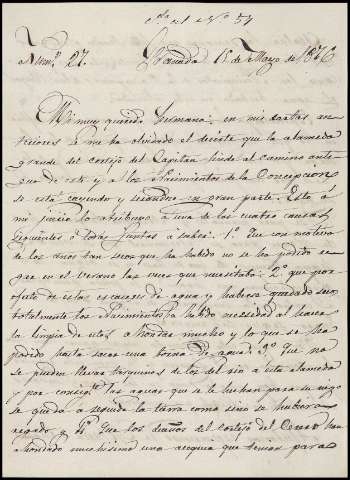 Num.º 27. Granada 15 de Mayo de 1876
Mi muy querido hermano: en mis cartas an-
teriores se me ha olvidado el decirte que la alameda
grande del cortijo del Capitan linde al camino anti-
guo de este y a los Nacimientos de la Concepcion
se está cayendo y secandose en gran parte. Esto á
mi juicio lo atribuyo a una de las cuatro causas
siguientes ó todas juntas á saber: 1.º Que con motivo
de los años tan secos que ha habido no se ha podido re-
gar en el verano las veces que necesitaba: 2.º que por
efecto de estas escaseces de agua y haberse quedado seco
totalmente los Nacimientos ha habido necesidad al hacer
la limpia de estos ahondar mucho y lo que se ha
podido hasta sacar una torna de agua: 3.º Que no
se pueden llevar tarquines de los del rio a esta alameda
y por consigte. las aguas que se le hechan para su riego
se queda á seguida la tierra como sino se hubiera
regado y 4.º Que los dueños del cortijo del Cerero han
ahondado muchisimo una acequia que tenian para